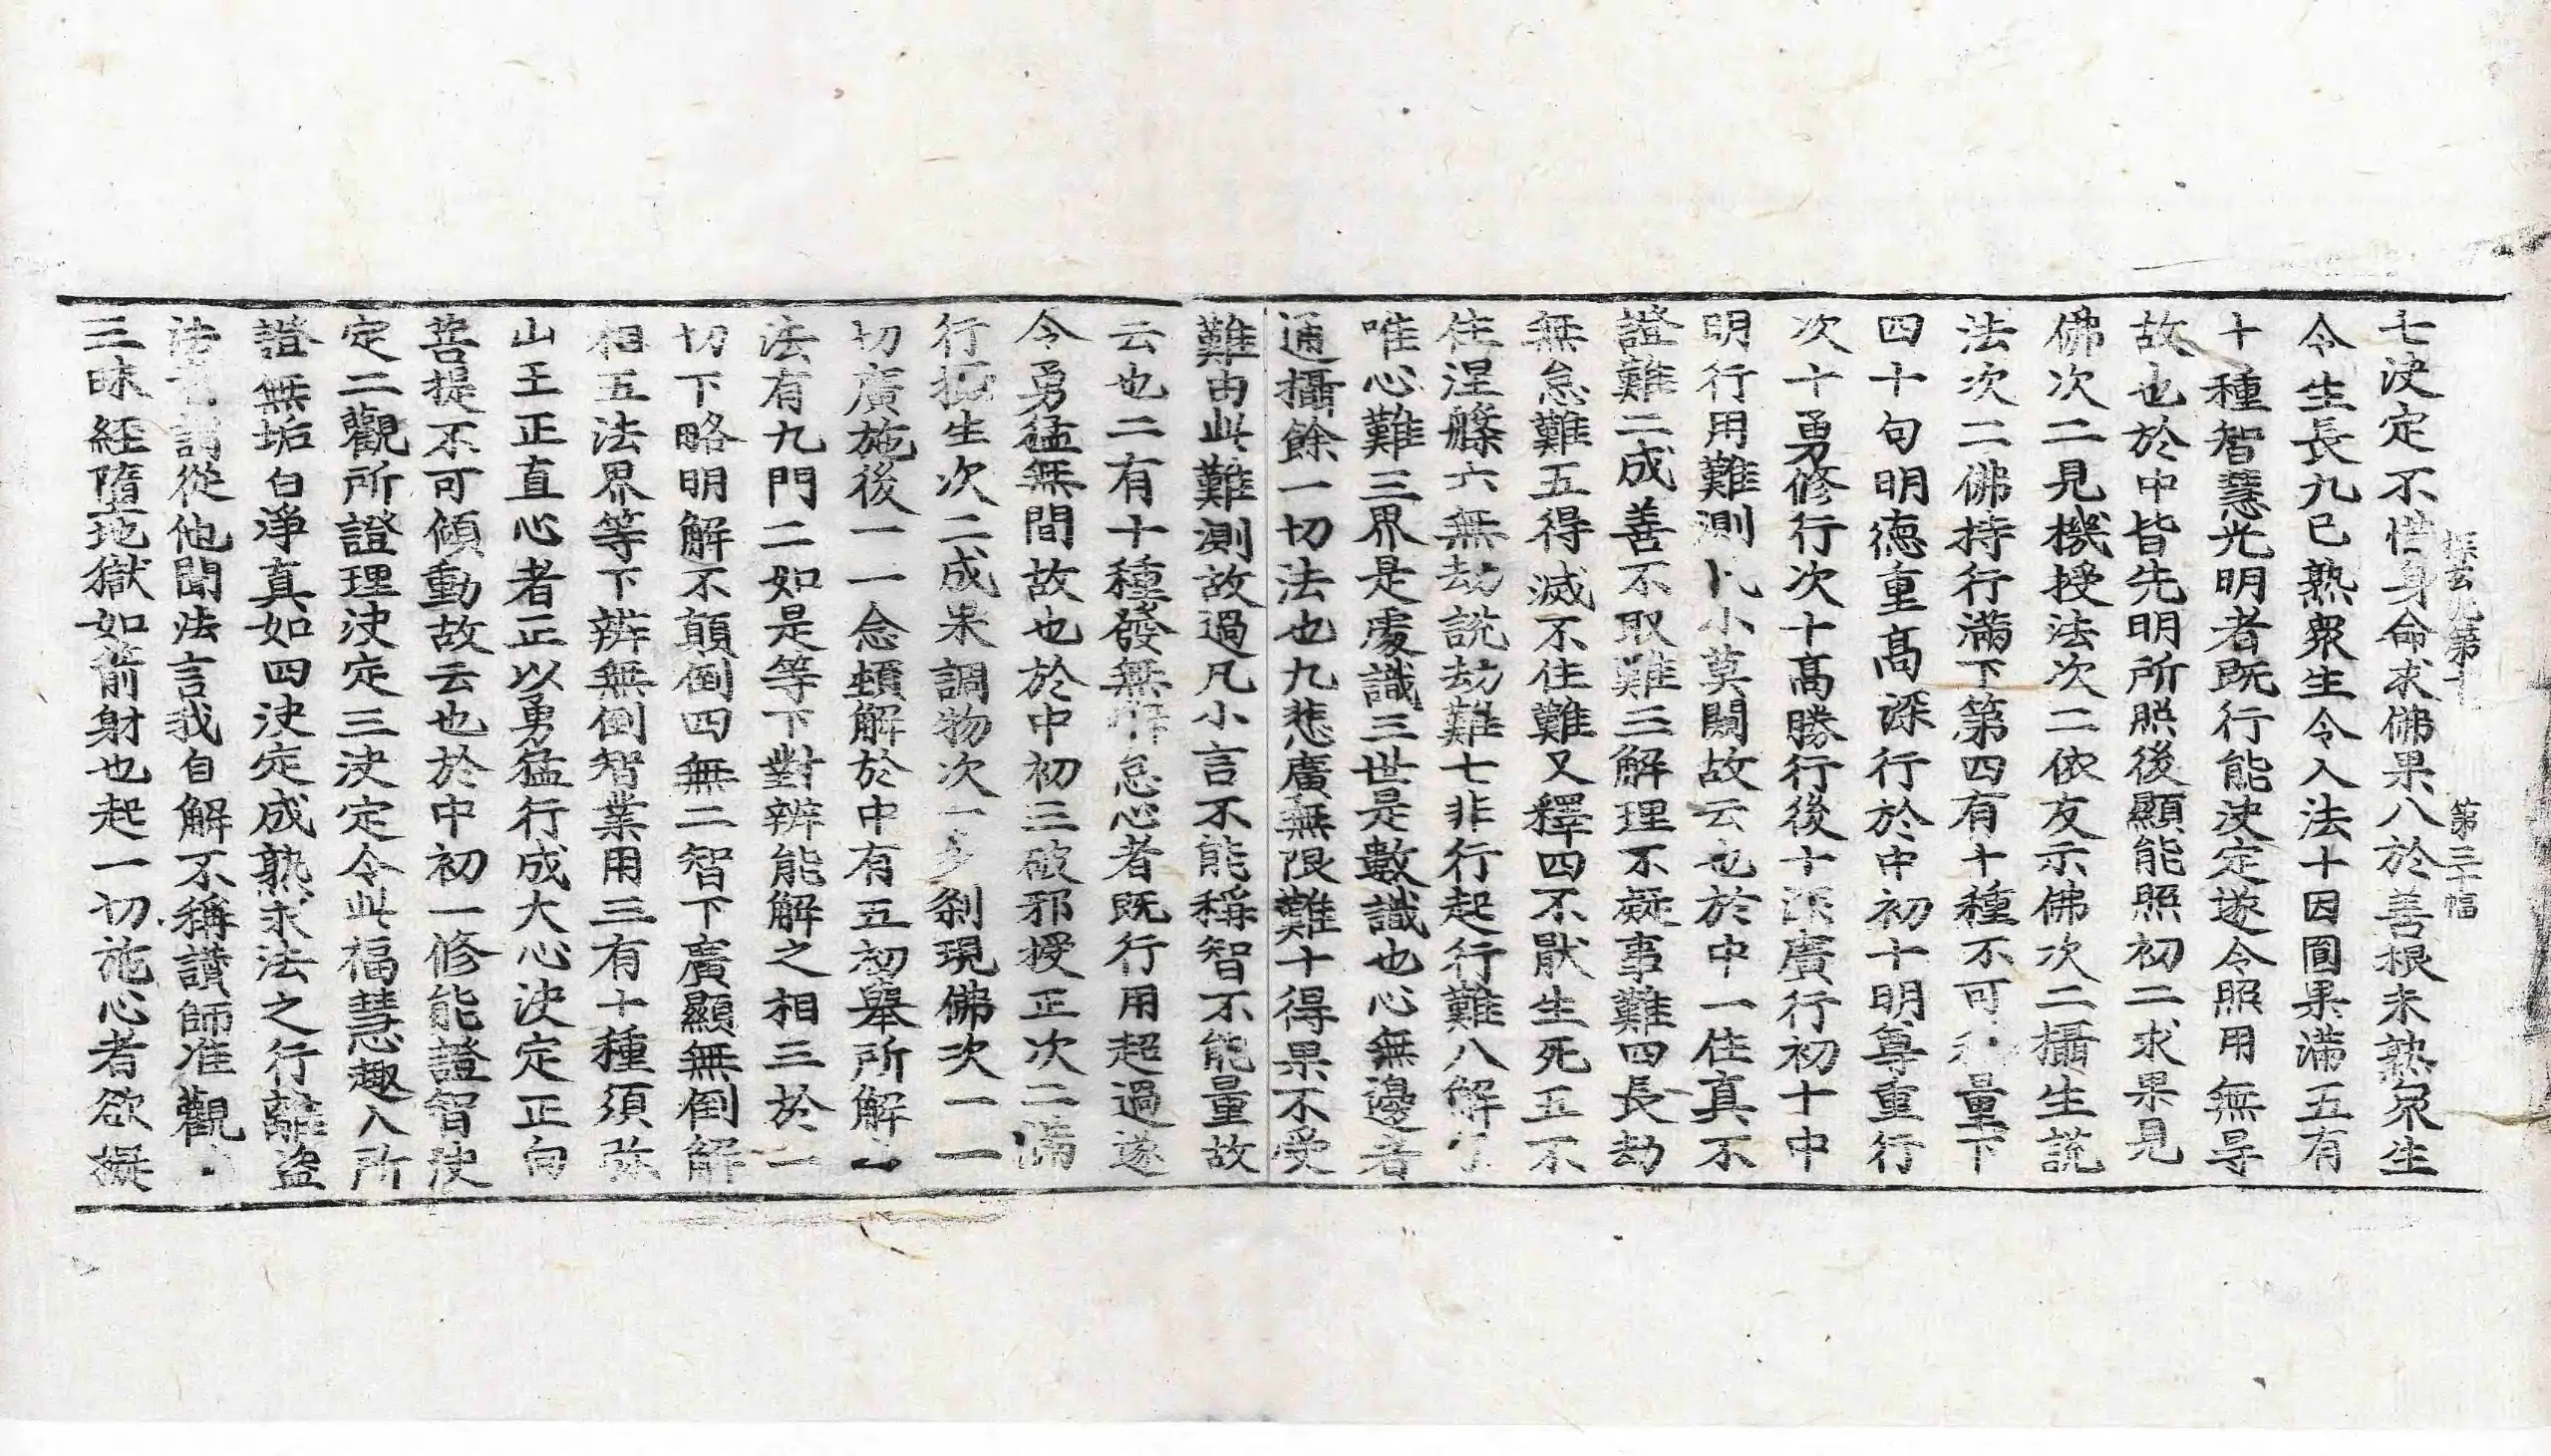 七决定不惜身命求佛果八於善根未熟眾生
探玄記第十 第三十幅
令生長九已熟眾生令入法十因圓果滿五有
十種智慧光明者既行能決定遂令照用無㝵
故也於中皆先明所照後顯能照初二求果見
佛次二見機授法次二依友示佛次二攝生說
法次二佛持行滿下第四有十種不可量下
四十句明德重高深行於中初十明尊重行
次十勇修行次十高勝行後十深廣行初十中
明行用難測凡小莫闚故云也於中一住真不
證難二成善不取難三解理不疑事難四長劫
無怠難五得滅不住難又釋四不猒生死五不
住涅槃六無劫說劫難七非行起行難八解了
唯心難三界是處識三世是數識也心無邊者
通攝餘一切法也九悲廣無限難十得果不受
難由此難測故過凡小言不能稱智不能量故
云也二有十種發無懈怠心者既行用超過遂
令勇猛無間故也於中初三破邪授正次二滿
行攝生次二成果調物次一多剎現佛次一一
切廣施後一一念頓解於中有五初舉所解一
法有九門二如是等下對辨能解之相三於一
切下略明解不顛倒四無二智下廣顯無倒解
相五法界等下辨無倒智業用三有十種須弥
山王正直心者正以勇猛行成大心決定正向
菩提不可傾動故云也於中初一修能證智決
定二觀所證理決定三決定令此福慧趣入所
證無垢白淨真如四決定成熟求法之行離盜
法言謂從他聞法言我自解不稱讚師准觀
三昧經墮地獄如箭射也起一切施心者欲擬